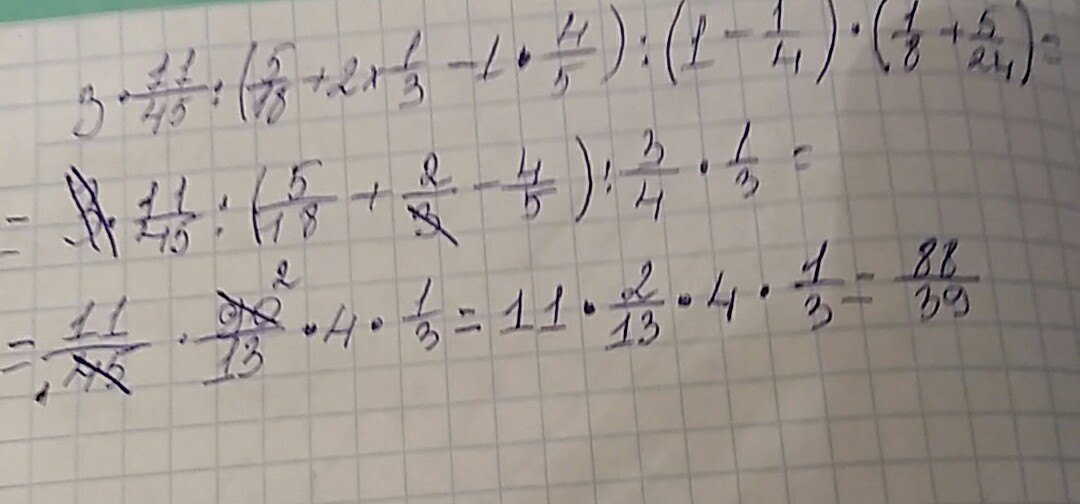 3 · 11/45 : (5/18 + 2 × 1/3 - 1 · 4/5) : (1 - 1/4) · (1/8 + 5/24) =
= 3 · 11/45 : (5/18 + 2/3 - 4/5) : 3/4 · 1/3 =
= 11/45 · 90/13 2 · 4 · 1/3 = 11 · 2/13 · 4 · 1/3 = 88/39